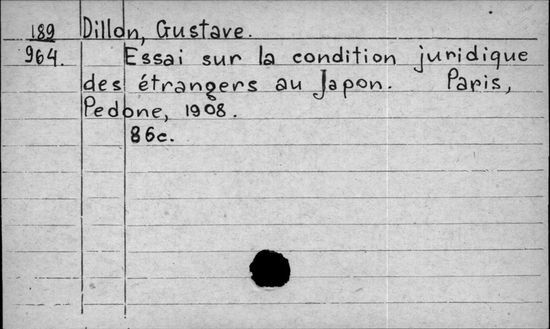 189 Dillon, Gustave.
964. Essai sur la condition juridique
des étrangers au Japon. Paris,
Pedone, 1908.
86c.